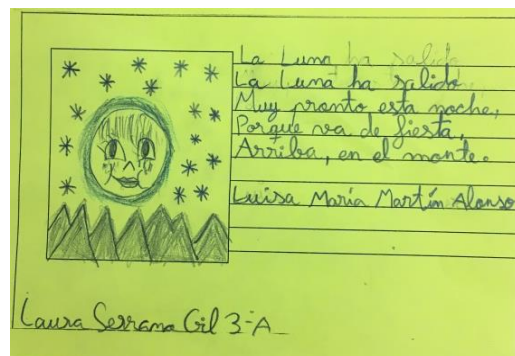 La Luna ha salido
La Luna ha salido
Muy pronto esta noche,
Porque va de fiesta,
Arriba, en el monte.
Luisa María Martín Alonso
Laura Serrano Gil 3-A